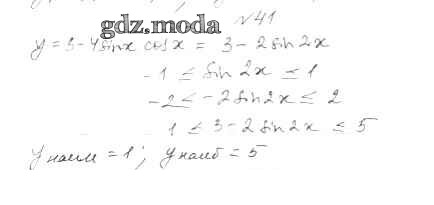 gdz.moda №41
y = 3 - 4 sin x cos x = 3 - 2 sin 2x
-1 ≤ sin 2x ≤ 1
-2 ≤ -2 sin 2x ≤ 2
1 ≤ 3 - 2 sin 2x ≤ 5
y наим = 1; y наиб = 5